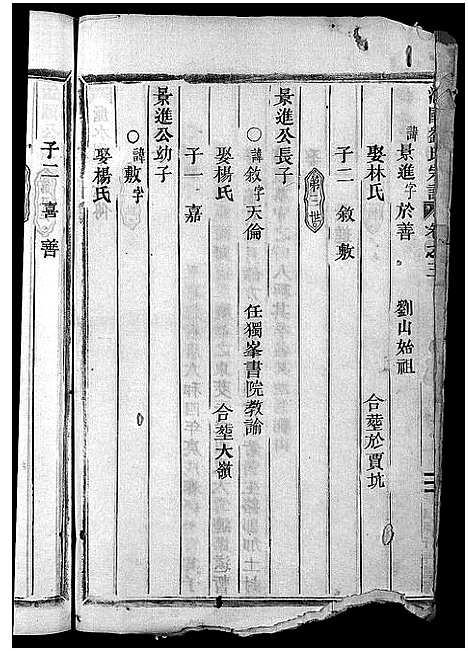 劉氏宗譜 卷之三
諱景進字於善 劉山始祖
娶林氏 合塟於賈坑
子二 敘 敷
第二世
景進公長子
○諱敘字天倫 任獨峯書院教諭
娶楊氏 合塟大嶺
子一 嘉
景進公幼子
○諱敷字
娶楊氏
子二 喜 善